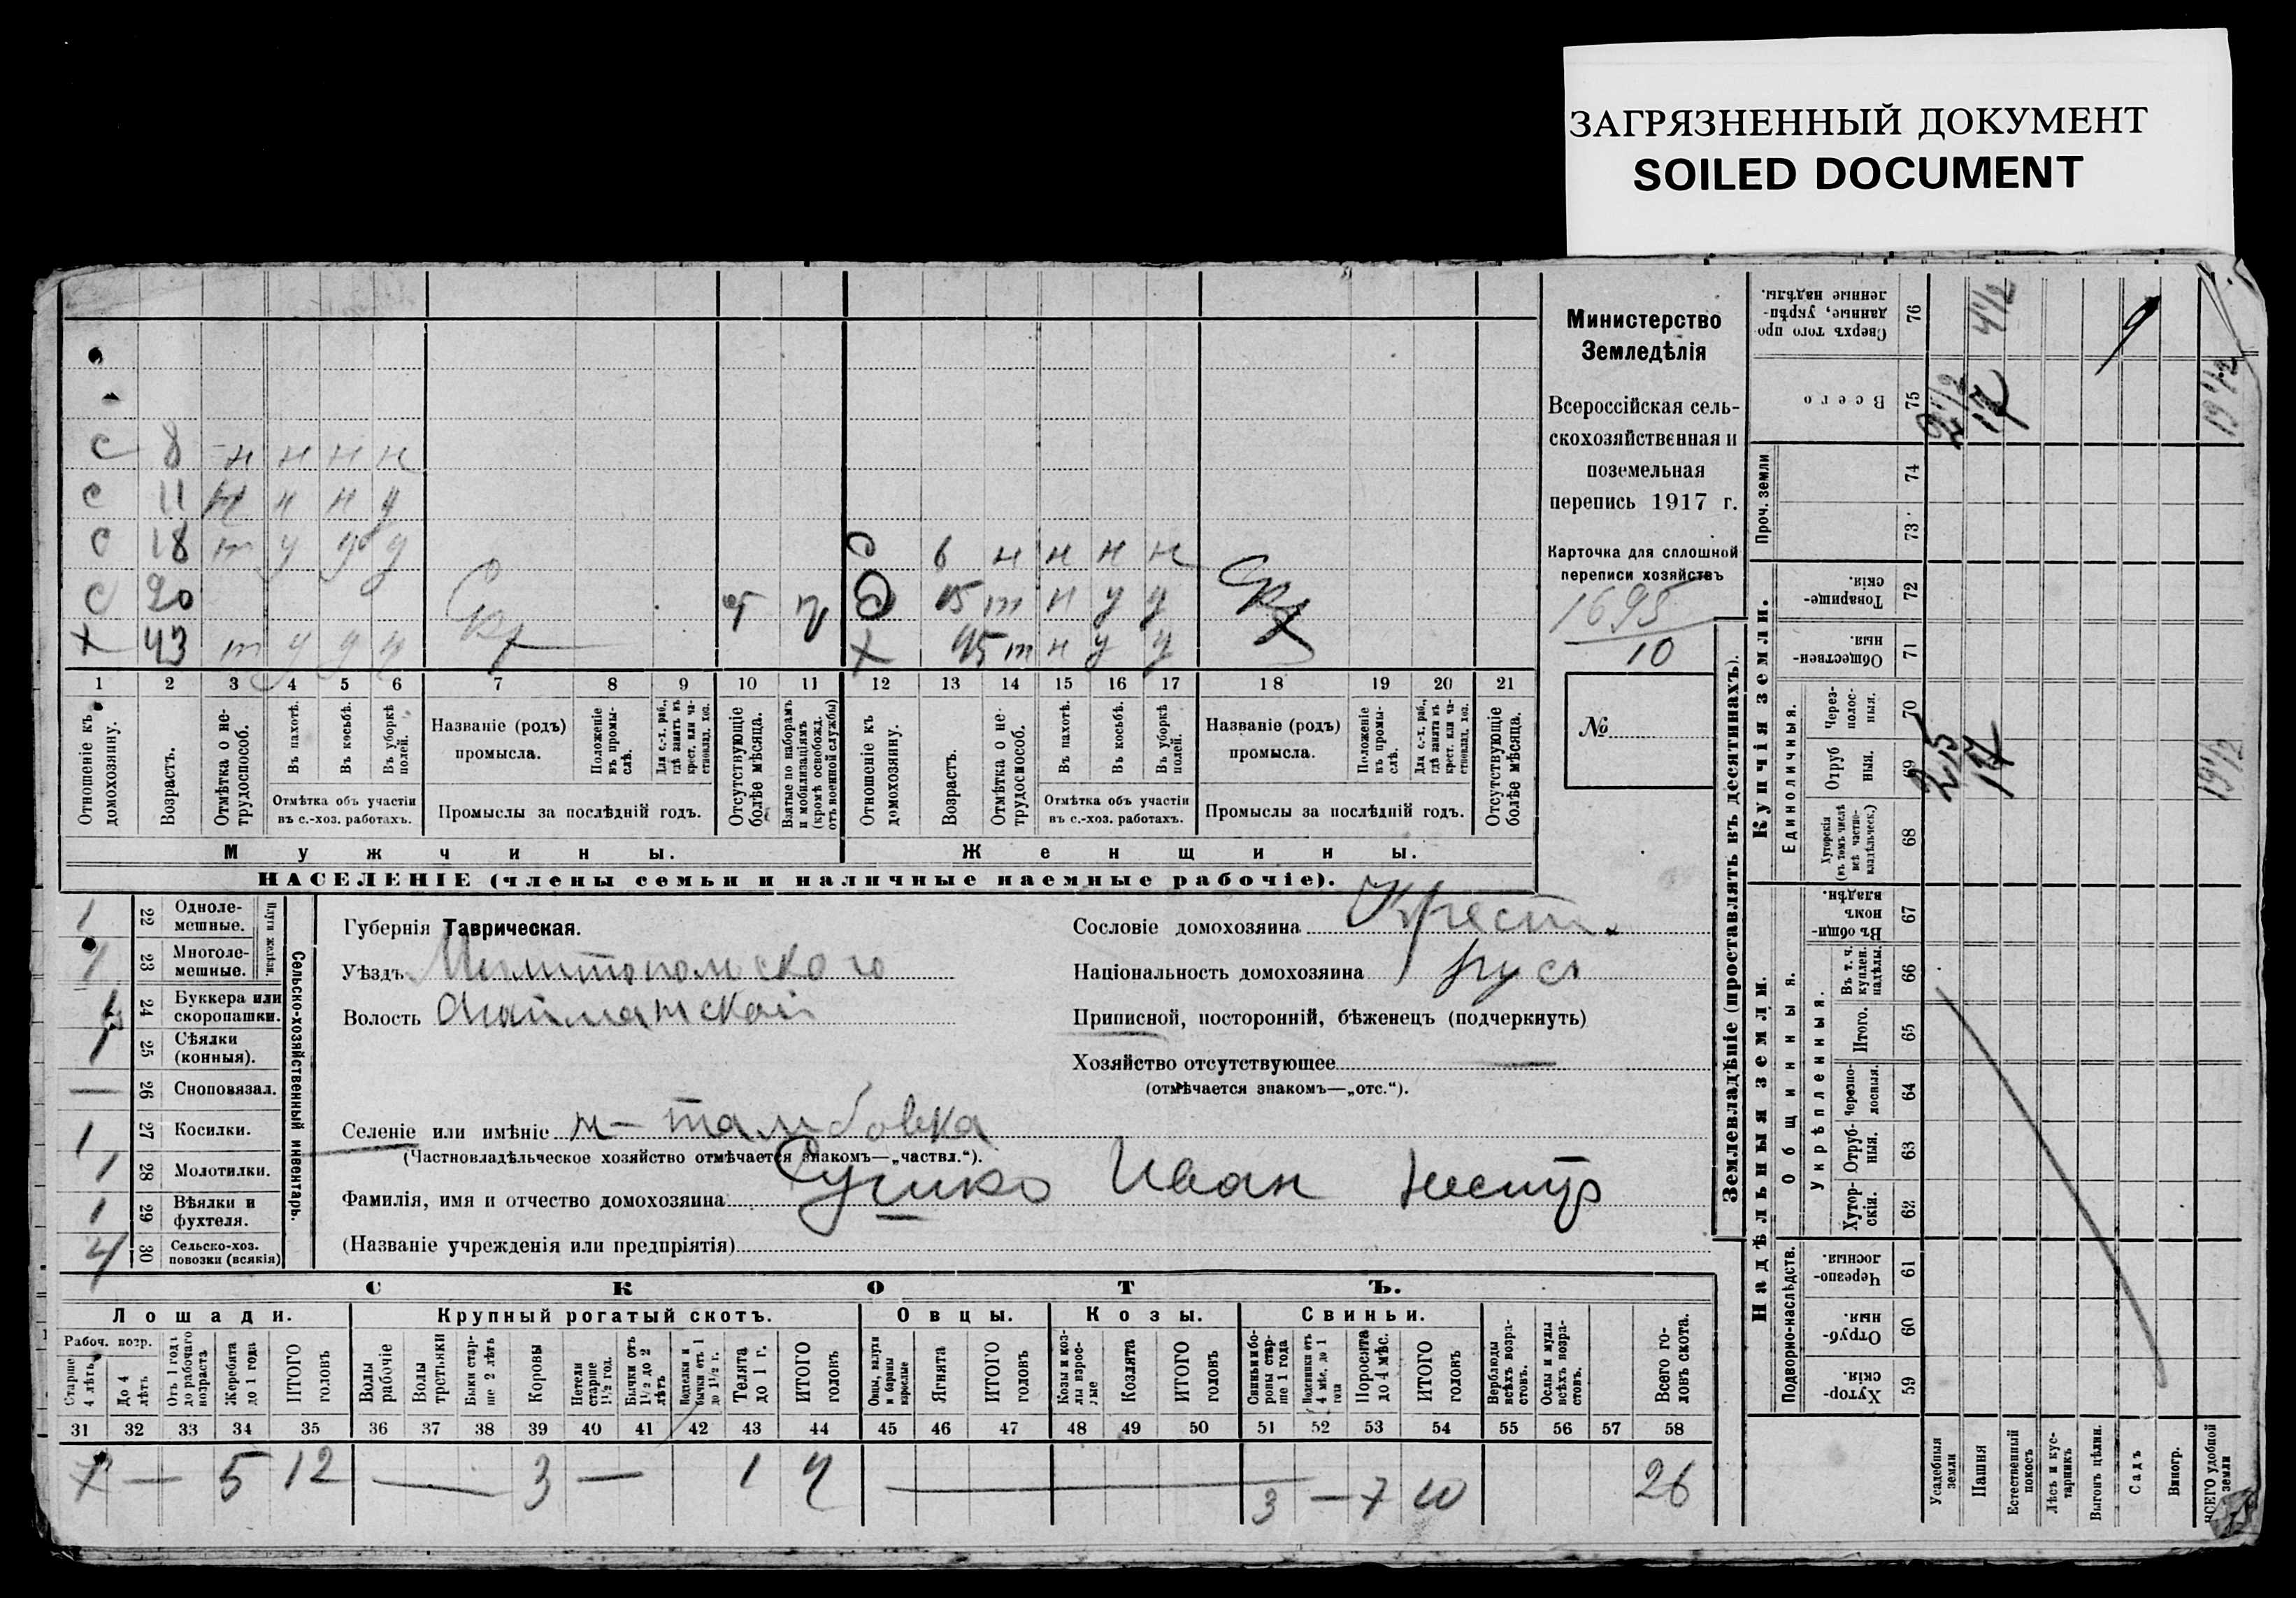 ЗАГРЯЗНЕННЫЙ ДОКУМЕНТ
SOILED DOCUMENT
с 8 н н н н
с 11 н н н у
с 18 т у у у
с 20
х 43 т у у у
6 н н н н
15 т н у у
х 45 т н у у
1 2 3 4 5 6 7 8 9 10 11 12 13 14 15 16 17 18 19 20 21
Отношеніе къ домохозяину.
Возрастъ.
Отмѣтка о не-трудоспособ.
Въ пахотѣ.
Въ косьбѣ.
Въ уборкѣ полей.
Отмѣтка объ участіи
въ с.-хоз. работахъ.
Названіе (родъ)
промысла.
Положеніе въ промы-слѣ.
Для с.-х. раб., гдѣ занятъ въ крест. или ча-стновлад. хоз.
Промыслы за послѣдній годъ.
Отсутствующіе болѣе мѣсяца.
Взятые по наборамъ и мобилизаціямъ (кромѣ освобожд. отъ военной службы)
Отношеніе къ домохозяину.
Возрастъ.
Отмѣтка о не-трудоспособ.
Въ пахотѣ.
Въ косьбѣ.
Въ уборкѣ полей.
Отмѣтка объ участіи
въ с.-хоз. работахъ.
Названіе (родъ)
промысла.
Положеніе въ промы-слѣ.
Для с.-х. раб., гдѣ занятъ въ крест. или ча-стновлад. хоз.
Промыслы за послѣдній годъ.
Отсутствующіе болѣе мѣсяца.
Мужчины.
Женщины.
НАСЕЛЕНІЕ (члены семьи и наличные наемные рабочіе).
Министерство
Земледѣлія
Всероссійская сель-
скохозяйственная и
поземельная
перепись 1917 г.
Карточка для сплошной
переписи хозяйствъ
1695
10
№
1 22 Однолемешные.
23 Многолемешные.
Плуги желѣзн.
24 Буккера или скоропашки.
25 Сѣялки (конныя).
— 26 Сноповязал.
1 27 Косилки.
28 Молотилки.
1 29 Вѣялки и фухтеля.
4 30 Сельско-хоз. повозки (всякія)
Сельско-хозяйственный инвентарь.
Губернія Таврическая.
Уѣздъ Мелитопольского
Волость
Селеніе или имѣніе Н-Тамбовка
(Частновладѣльческое хозяйство отмѣчается знакомъ—„частвл.“).
Фамилія, имя и отчество домохозяина Сушко Иван Нестр
(Названіе учрежденія или предпріятія)
Сословіе домохозяина Крест.
Національность домохозяина рус
Приписной, посторонній, бѣженецъ (подчеркнуть)
Хозяйство отсутствующее —
(отмѣчается знакомъ—„отс.“).
СКОТЪ.
Лошади. Крупный рогатый скотъ. Овцы. Козы. Свиньи.
Рабоч. возр.
Старше 4 лѣтъ
До 4 лѣтъ
Отъ 1 года до рабочаго возраста
Жеребята до 1 года
ИТОГО головъ
Волы рабочіе
Волы третьяки
Быки стар-ше 2 лѣтъ
Коровы
Нетели старше 1½ год.
Бычки отъ 1½ до 2 лѣтъ
Подтелки и бычки отъ 1 до 1½ г.
Телята до 1 г.
ИТОГО головъ
Овцы, валухи и бараны взрослые
Ягнята
ИТОГО головъ
Козы и коз-лы взрос-лые
Козлята
ИТОГО головъ
Свиньи и бо-ровы стар-ше 1 года
Подсвинки отъ 4 мѣс. до 1 года
Поросята до 4 мѣс.
ИТОГО головъ
Верблюды всѣхъ возра-стовъ.
Ослы и мулы всѣхъ возра-стовъ.
Всего го-ловъ скота.
31 32 33 34 35 36 37 38 39 40 41 42 43 44 45 46 47 48 49 50 51 52 53 54 55 56 57 58
7 — 5 12 — 3 — 1 4 — 3 — 7 10 26
Землевладѣніе (проставлять въ десятинахъ).
Надѣльныя земли.
Купчія земли.
Проч. земли
Сверхъ того про-данные, укрѣп-ленные надѣлы. 76
Всего 75
74
73
Товарище-скія. 72
Обществен-ныя. 71
Единоличныя.
Через-полос-ныя. 70
Отруб ныя. 69
Хуторскія (въ томъ числѣ всѣ частно-владѣльческ.) 68
Общинныя.
Въ общи-номъ владѣн. 67
Укрѣпленныя.
Въ т. ч. куплен. надѣлы. 66
Итого. 65
Черезпо-лосныя. 64
Отруб-ныя. 63
Хутор-скія. 62
Подворно-наслѣдств.
Черезпо-лосныя. 61
Отруб-ныя. 60
Хутор-скія. 59
Усадебныя земли
Пашня
Естественный покосъ
Лѣсъ и кус-тарникъ
Выгонъ цѣлин.
Садъ
Виногр.
ВСЕГО удобной земли
4½
2½
17
19½
19½